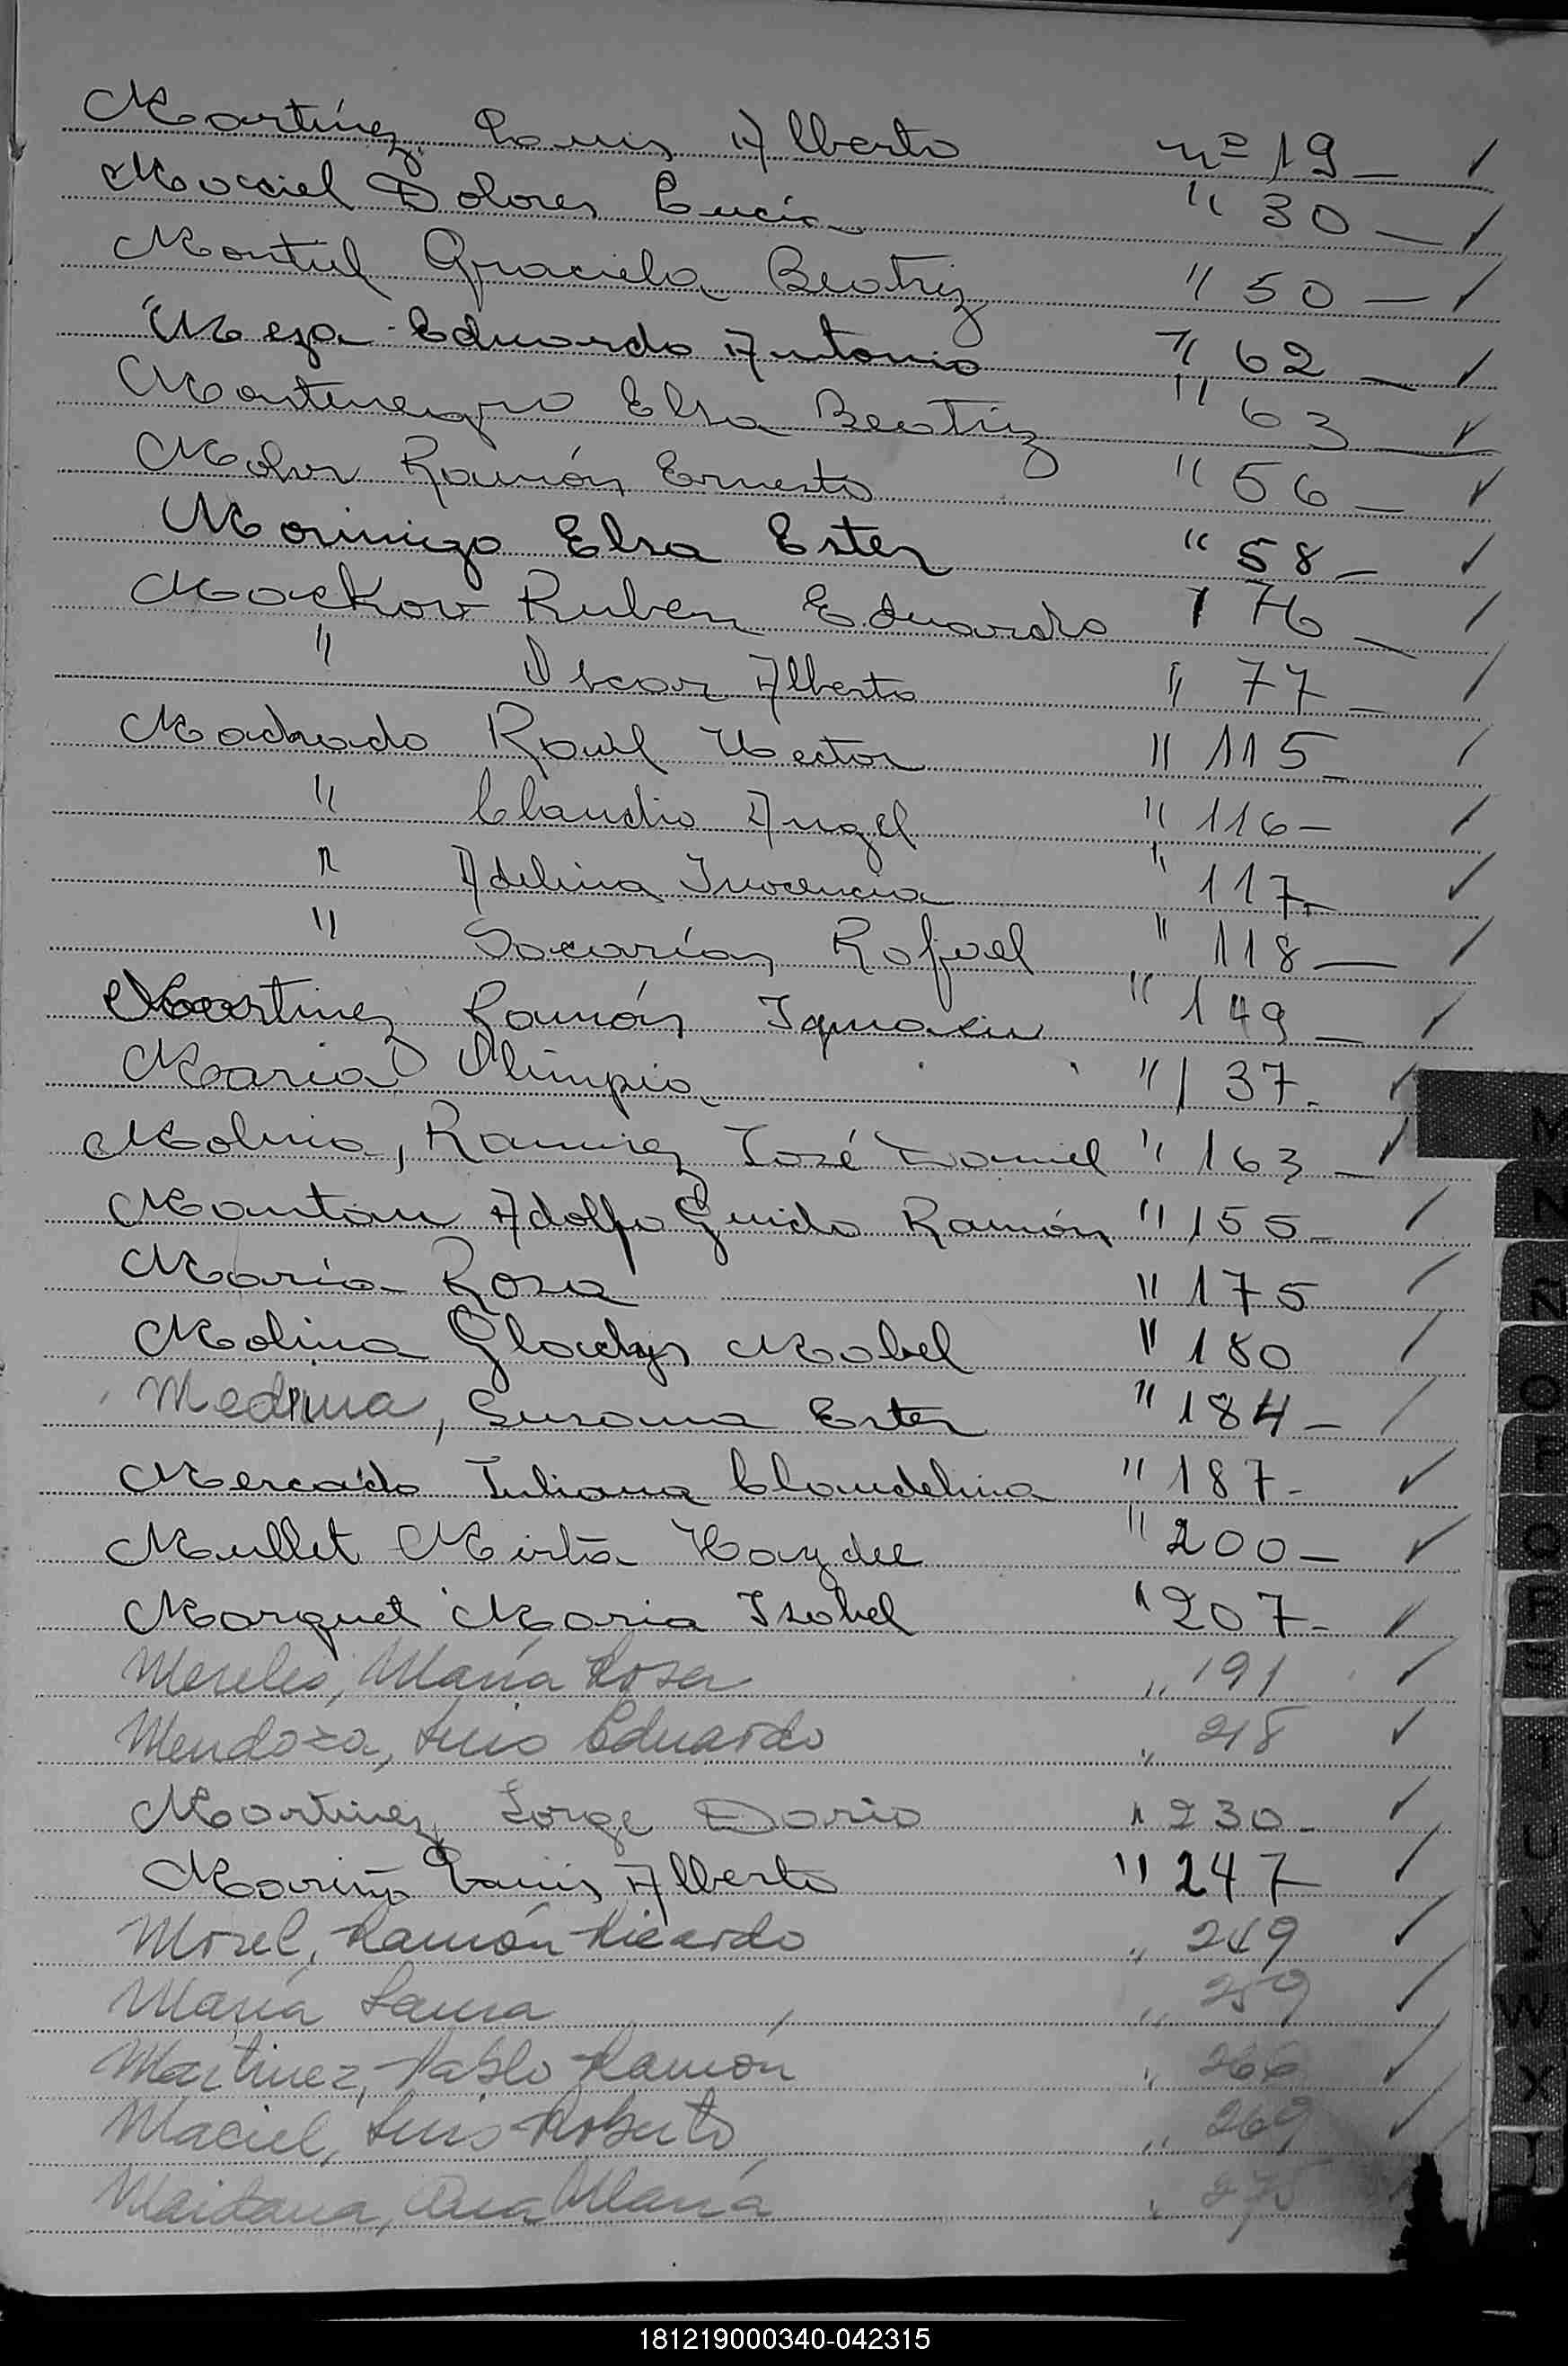 Martínez Luis Alberto nº 19 – ✓
Maciel Dolores Lucía " 30 – ✓
Montiel Graciela Beatriz " 50 – ✓
Meza Eduardo Antonio " 62 – ✓
Montenegro Elsa Beatriz " 63 – ✓
Ramón Ernesto " 56 – ✓
Morinigo Elsa Ester " 58 – ✓
Mackov Ruben Eduardo " 76 – ✓
" Oscar Alberto " 77 – ✓
Machado Raúl Hector " 115 – ✓
" Claudio Angel " 116 – ✓
" Adelina Inocencia " 117 – ✓
" Socarías Rafael " 118 – ✓
Martinez Ramón " 149 – ✓
Maria Olimpia " 137 – ✓
Molina, Ramirez José Daniel " 163 – ✓
Adolfo Guido Ramón " 155 – ✓
María Rosa " 175 ✓
Molina Gladys Mabel " 180 ✓
Medina, Susana Ester " 184 – ✓
Mercado Juliana Claudelina " 187 – ✓
Mullet Mirta Haydee " 200 – ✓
Marquet Maria Isabel " 207 – ✓
Mereles, María Rosa " 191 ✓
Mendoza, Luis Eduardo " 218 ✓
Martinez Jorge Dario " 230 – ✓
Mariño Luis Alberto " 247 ✓
Morel, Ramón Ricardo " 249 ✓
María Laura " 259 ✓
Martinez, Pablo Ramón " 266 ✓
Maciel, Luis Roberto " 269 ✓
Maidana, Ana María " 275
M
N
Ñ
O
P
Q
R
S
T
U
V
W
X
181219000340-042315